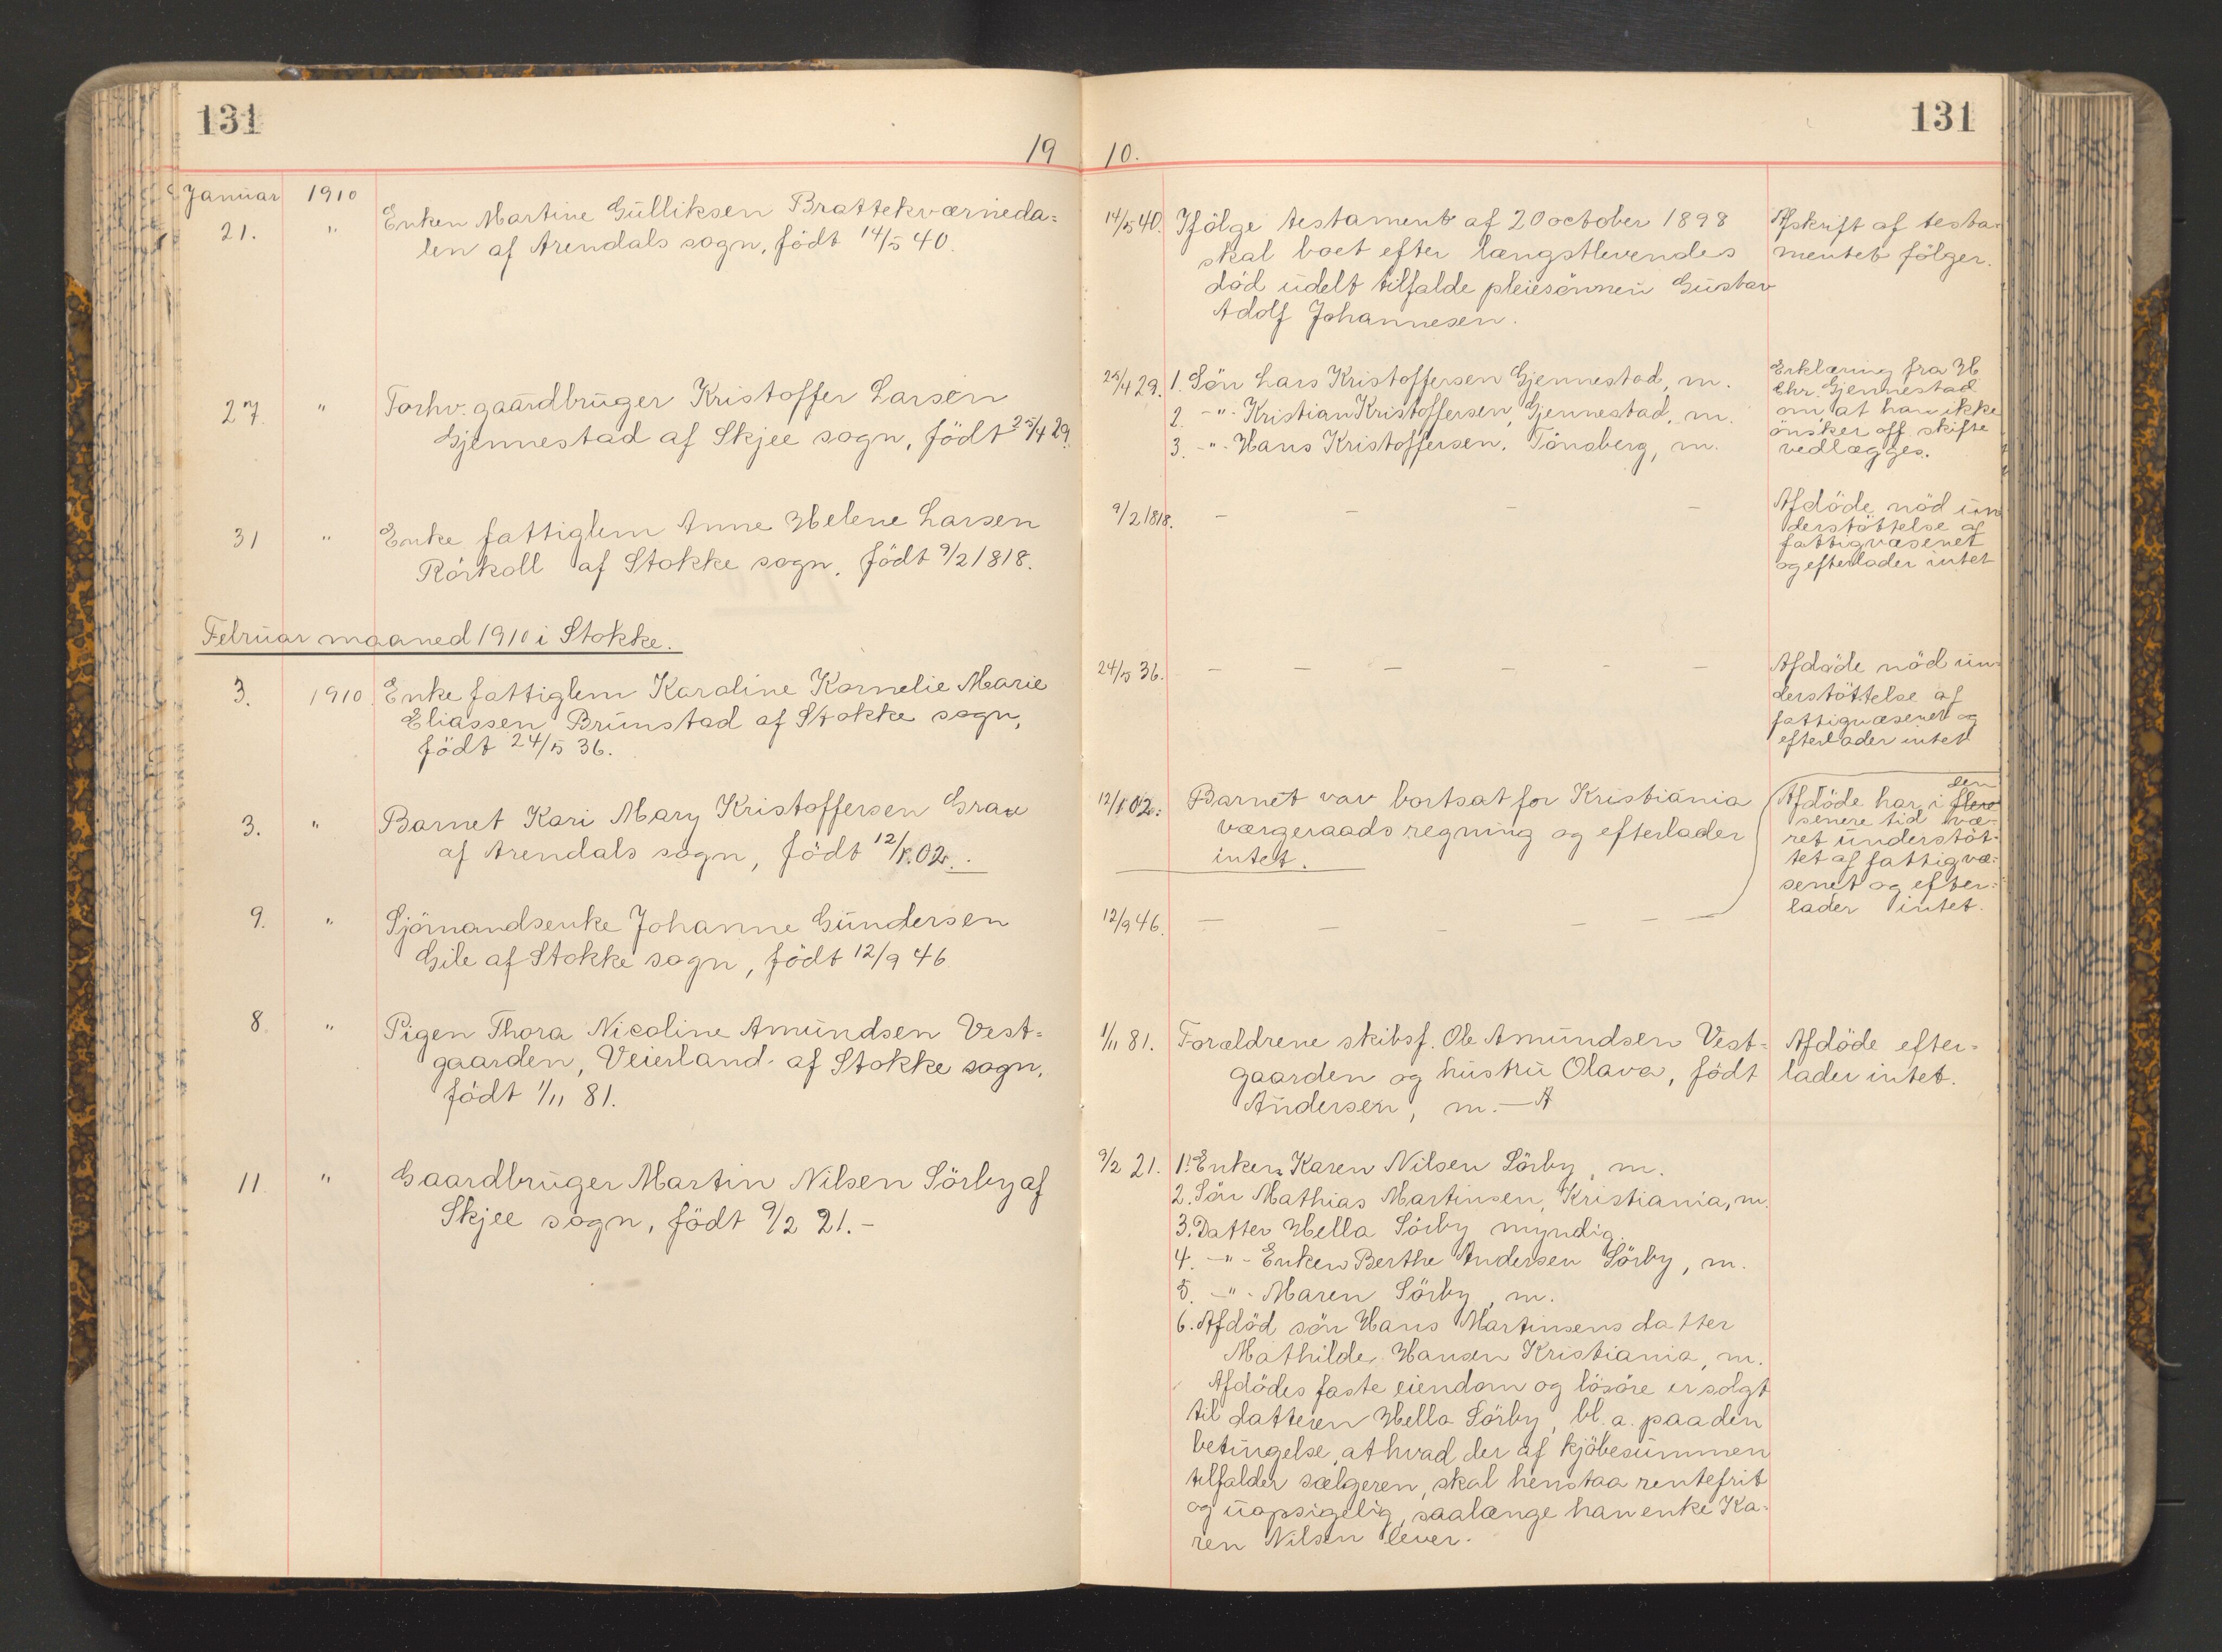 131
131
19 10.
Januar 1910
21. " Enken Martine Gulliksen Brattekværneda=
len af Arendals sogn, födt 14/5 40.
14/5 40. Ifölge testament af 20 october 1898
skal boet efter længstlevendes
död udelt tilfalde pleiesönnen Gustav
Adolf Johannesen.
Afskrift af testa=
mentet fölger.
27. " Forhv. gaardbruger Kristoffer Larsen
Gjennestad af Skjee sogn, födt 25/4 29.
25/4 29. 1. Sön Lars Kristoffersen Gjennestad, m.
2. -"- Kristian Kristoffersen, Gjennestad, m.
3. -"- Hans Kristoffersen, Tönsberg, m.
Erklæring fra H
Chr. Gjennestad
om at han ikke
önsker off. skifte
vedlægges.
31 " Enke fattiglem Anne Helene Larsen
Rörkoll af Stokke sogn, födt 9/2 1818.
9/2 1818. - - - -
Afdöde nöd un
derstöttelse af
fattigvæsenet
og efterlader intet
Februar maaned 1910 i Stokke.
3. 1910. Enke fattiglem Karoline Kornelie Marie
Eliassen Brunstad af Stokke sogn,
födt 24/5 36.
24/5 36. - - - - - -
Afdöde nöd un=
derstöttelse af
fattigvæsenet og
efterlader intet
3. " Barnet Kari Mary Kristoffersen Grav
af Arendals sogn, födt 12/1.02.
12/1 02. Barnet var bortsat for Kristiania
værgeraads regning og efterlader
intet.
9. " Sjömandsenke Johanne Gundersen
Gile af Stokke sogn, födt 12/9 46
12/9 46. - - - - - -
den
Afdöde har i flere
senere tid væ-
ret understöt-
tet af fattigvæ-
senet og efter=
lader intet.
8. " Pigen Thora Nicoline Amundsen Vest=
gaarden, Veierland af Stokke sogn,
födt 1/11 81.
1/11 81. Forældrene skibsf. Ole Amundsen Vest=
gaarden og hustru Olava, födt
Andersen, m. - A
Afdöde efter=
lader intet.
11. " Gaardbruger Martin Nilsen Sörby af
Skjee sogn, födt 9/2 21.-
9/2 21. 1. Enken Karen Nilsen Sörby, m.
2. Sön Mathias Martinsen, Kristiania, m.
3. Datter Hella Sörby myndig.
4. -"- Enken Berthe Andersen Sörby, m.
5. -"- Maren Sörby, m.
6. Afdöd sön Hans Martinsens datter
Mathilde Hansen Kristiania, m.
Afdödes faste eiendom og lösöre er solgt
til datteren Hella Sörby, bl. a. paa den
betingelse, at hvad der af kjöbesummen
tilfalder sælgeren, skal henstaa rentefrit
og uopsigelig, saalænge han enke Ka=
ren Nilsen lever.